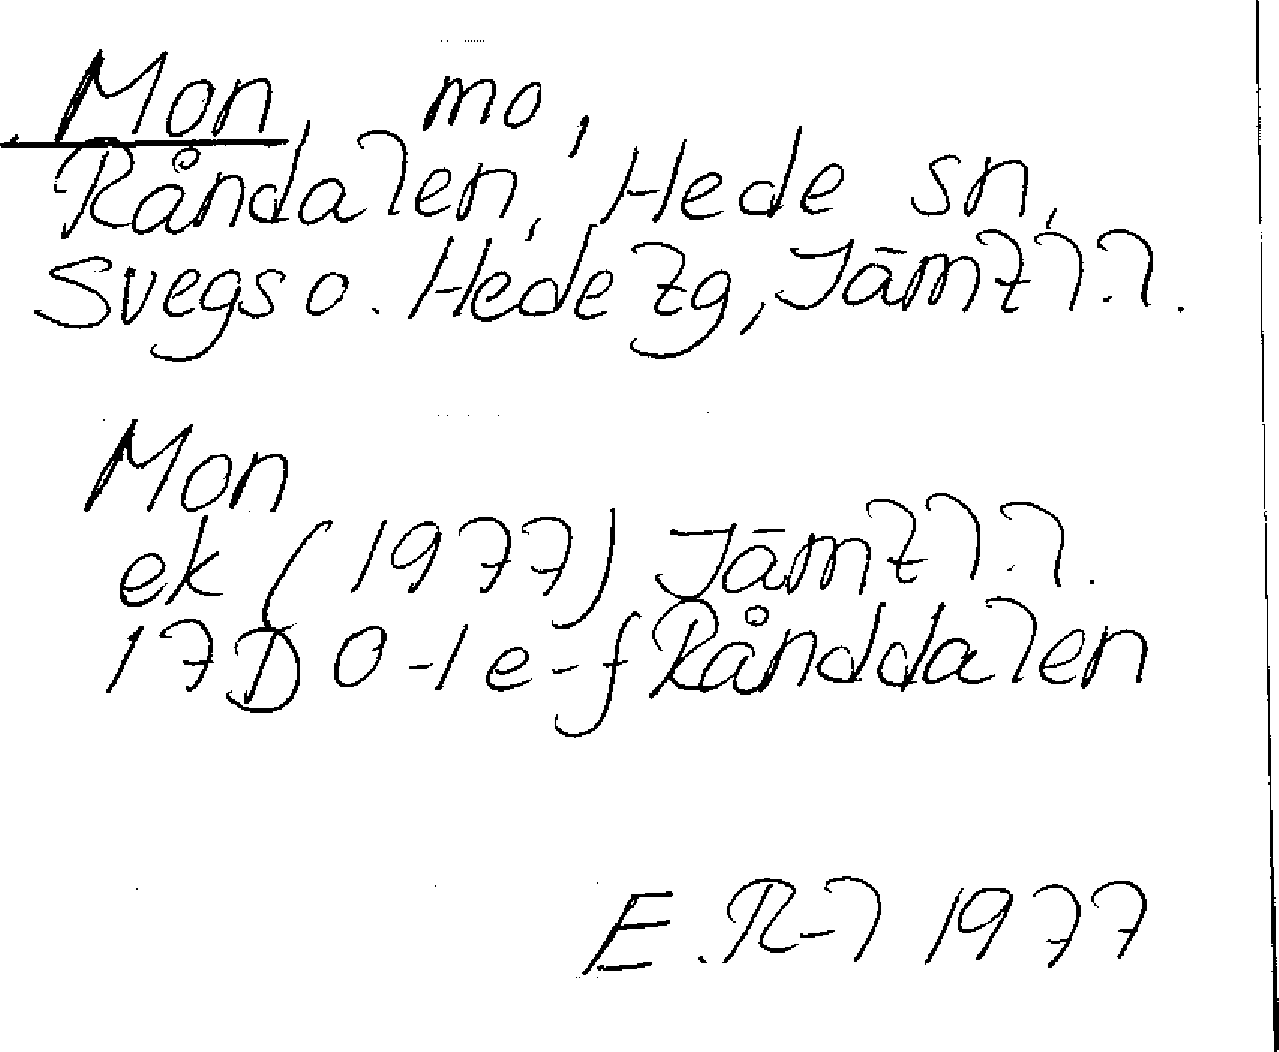 Mon mo,
Råndalen, Hede sn,
Svegs o. Hede tg, Jämtl.l.
Mon
ek (1977) Jämtl.l.
17D 0-1 e-f Rånddalen
E. R-l 1977